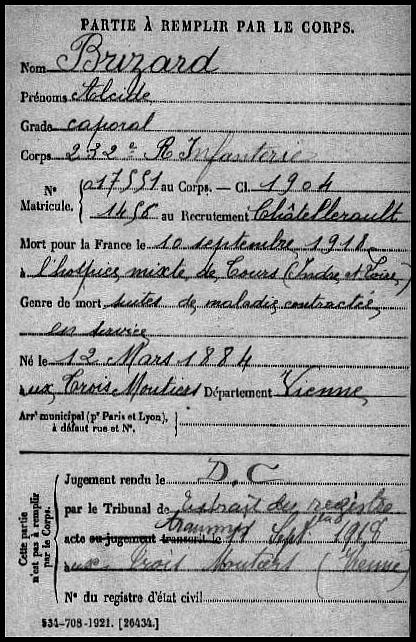 PARTIE À REMPLIR PAR LE CORPS.
Nom Brizard
Prénoms Alcide
Grade caporal
Corps 232e R Infanterie
N° Matricule. { 017551 au Corps. — Cl. 1904
1458 au Recrutement Châtellerault
Mort pour la France le 10 septembre 1918
à l'hospice mixte de Tours (Indre et Loire)
Genre de mort suites de maladie contractée
en service
Né le 12 Mars 1884
aux Trois Moutiers Département Vienne
Arrt municipal (pr Paris et Lyon), à défaut rue et N°. }
Cette partie n'est pas à remplir par le Corps. {
Jugement rendu le D.C
par le Tribunal de Extrait du registre
acte ou jugement transcrit le transmis Sept 1918
aux Trois Moutiers (Vienne)
N° du registre d'état civil
534-708-1921. [26434.]